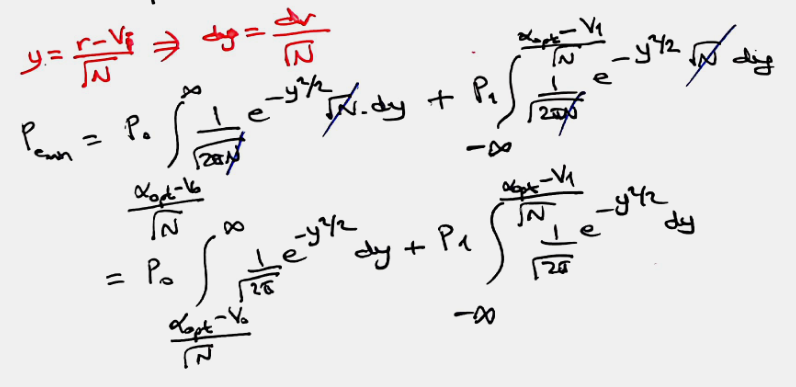 y = (r − Vᵢ)/√N ⇒ dy = dr/√N
Pₑₘᵢₙ = P₀ ∫_{(α_opt − V₀)/√N}^{∞} 1/√(2πN) e^{−y²/2} √N · dy + P₁ ∫_{−∞}^{(α_opt − V₁)/√N} 1/√(2πN) e^{−y²/2} √N dy
= P₀ ∫_{(α_opt − V₀)/√N}^{∞} 1/√(2π) e^{−y²/2} dy + P₁ ∫_{−∞}^{(α_opt − V₁)/√N} 1/√(2π) e^{−y²/2} dy